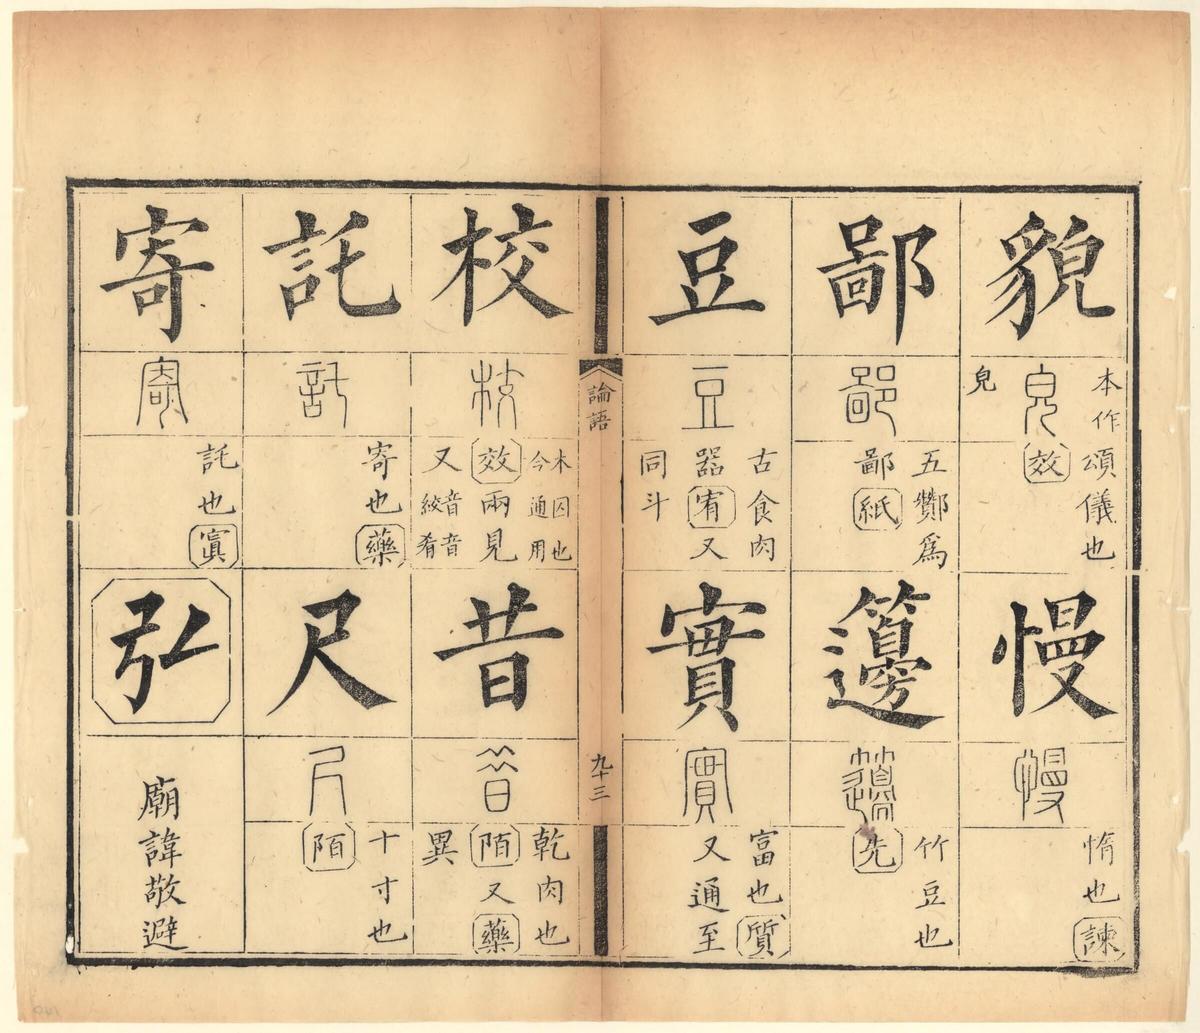 貌
皃
本作
皃
頌儀也
效
慢
慢
惰也諫
鄙
鄙
五酇爲
鄙紙
籩
籩
竹豆也
先
豆
豆
古食肉
器宥又
同斗
實
實
富也質
又通至
論語
九十三
校
校
木囚也
今通用
效兩見
又音絞音肴
昔
昔
乾肉也
陌又藥
異
託
託
寄也藥
尺
尺
十寸也
陌
寄
寄
託也寘
弘
廟諱敬避